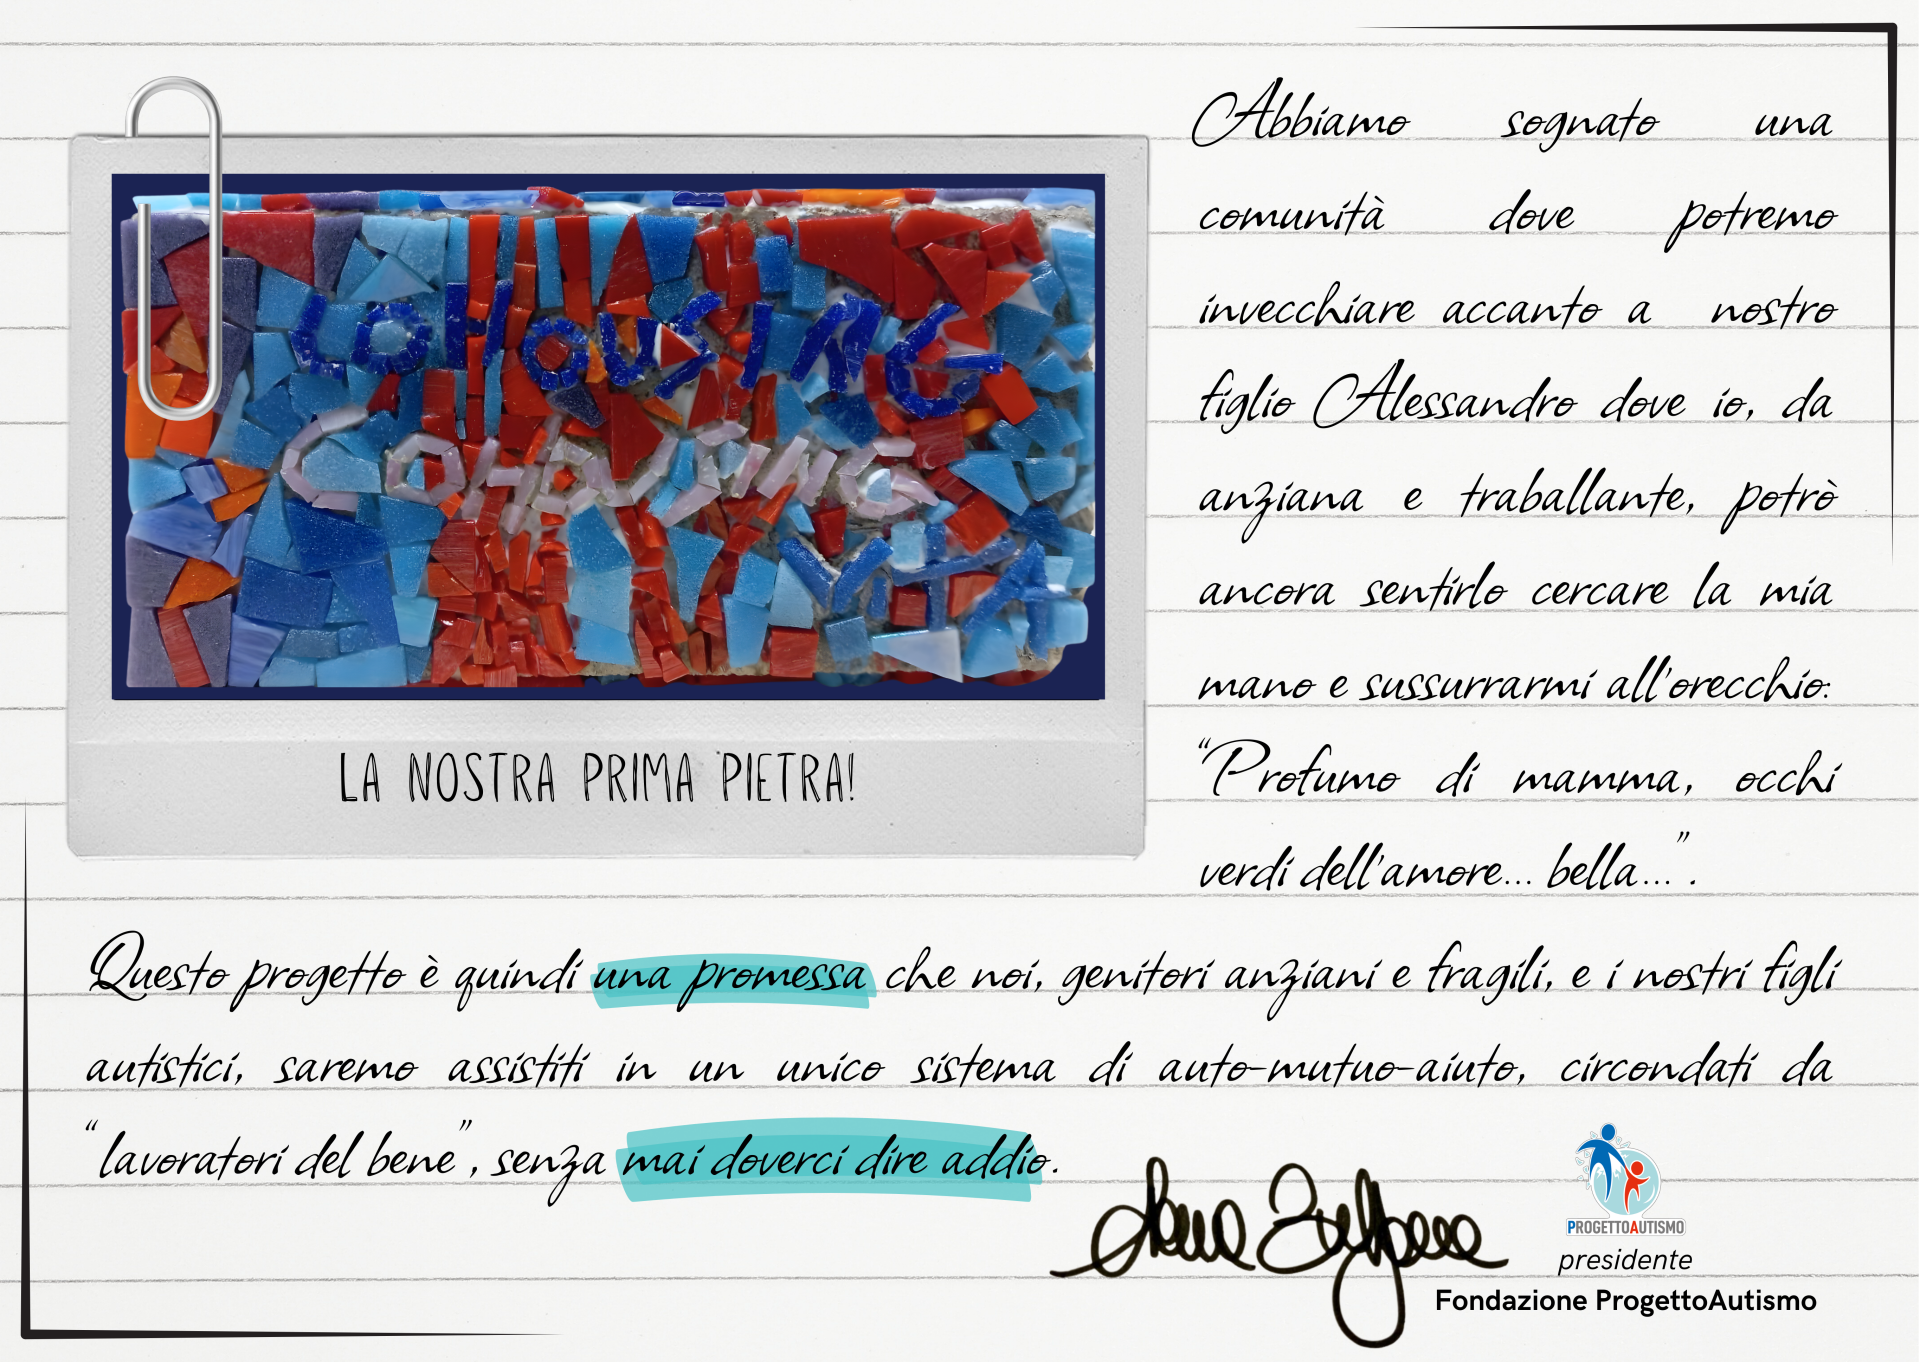 COHOUSING
COHOUSING
VITA
LA NOSTRA PRIMA PIETRA!
Abbiamo sognato una
comunità dove potremo
invecchiare accanto a nostro
figlio Alessandro dove io, da
anziana e traballante, potrò
ancora sentirlo cercare la mia
mano e sussurrarmi all'orecchio:
“Profumo di mamma, occhi
verdi dell'amore... bella...”.
Questo progetto è quindi una promessa che noi, genitori anziani e fragili, e i nostri figli
autistici, saremo assistiti in un unico sistema di auto-mutuo-aiuto, circondati da
“lavoratori del bene”, senza mai doverci dire addio.
PROGETTOAUTISMO
presidente
Fondazione ProgettoAutismo